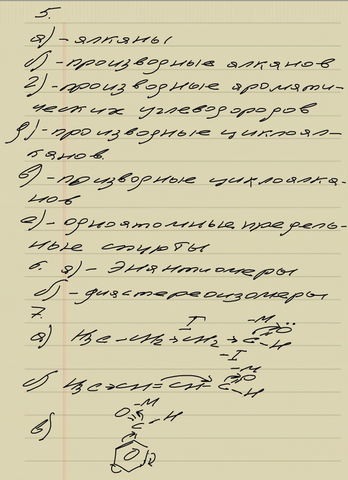 5.
а) - алканы
б) - производные алканов
г) - производные аромати-
ческих углеводородов
д) - производные циклоал-
канов.
в) - производные циклоалка-
нов
е) - одноатомные предель-
ные спирты
6. а) - Энантиомеры
б) - диастереоизомеры
7.
I -M
а) H₃C-CH₂→CH₂→C O
-H
-I
-M
б) H₃C→CH=CH-C O
-H
-M
в) O C-H